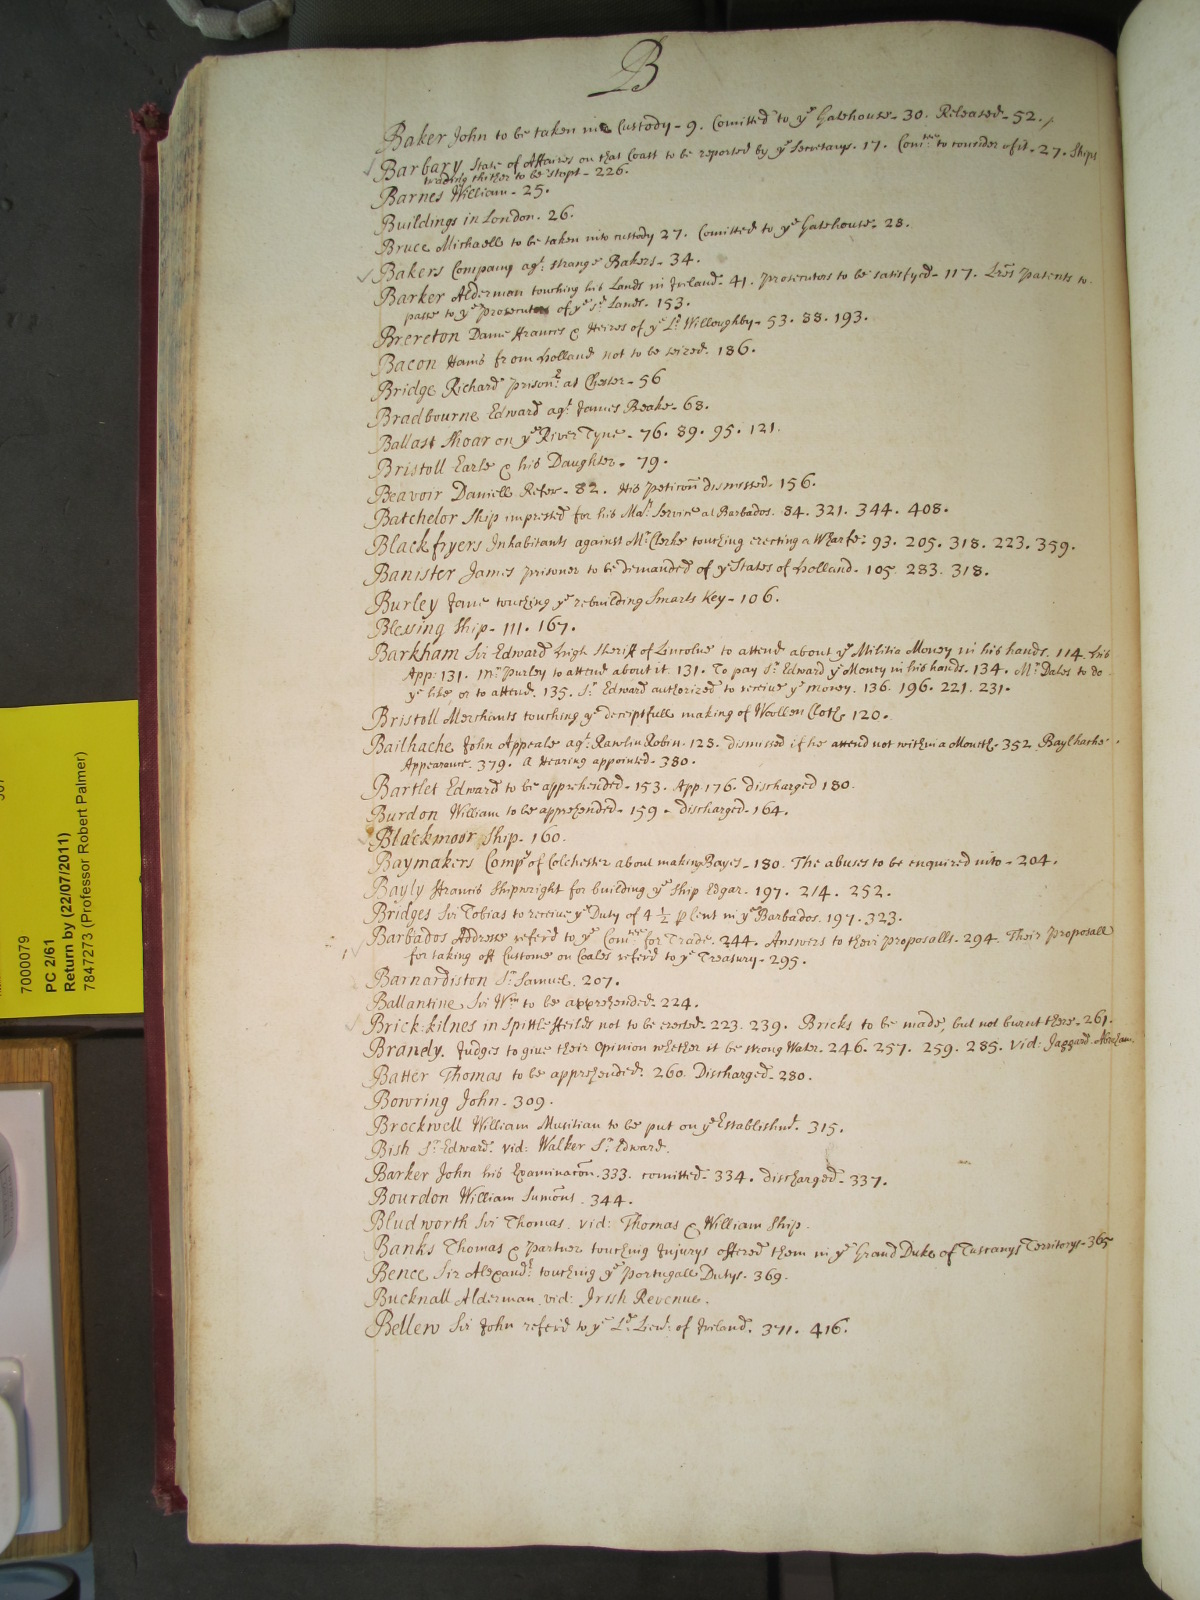 B
Baker John to be taken into Custody - 9. Comitted to ye Gatehouse - 30. Released - 52.
Barbary State of Affaires on that Coast to be reported by ye Secretarys. 17. Comtee to consider of it - 27. Ships
trading thither to be stopt - 226.
Barnes William - 25.
Buildings in London. 26.
Bruce Michaell to be taken into custody 27. Comitted to ye Gatehouse - 28.
Bakers Company agt: strange Bakers - 34.
Barker Alderman touching his Lands in Ireland. 41. Prosecutors to be satisfyed - 117. Lres Patents to
passe to ye Prosecutors of ye sd Lands. 153.
Brereton Dame Frances & Heires of ye Ld Willoughby - 53. 88. 193.
Bacon Hams from Holland not to be seized. 186.
Bridge Richard prisonr: at Chester - 56
Bradbourne Edward agt James Beake - 68.
Ballast Shoar on ye River Tyne - 76. 89. 95. 121.
Bristoll Earle & his Daughter - 79.
Beavoir Daniell Refer - 82. His Peticon dismissed - 156.
Batchelor Ship impressed for his Mats Service at Barbados. 84. 321. 344. 408.
Blackfryers Inhabitants against Mr Clerke touching erecting a Wharfe: 93. 205. 318. 223. 359.
Banister James prisoner to be demanded of ye States of Holland - 105. 283. 318.
Burley Jane touching ye rebuilding Smarts Key - 106.
Blessing Ship - 111. 167.
Barkham Sir Edward high Sheriff of Lincolne to attend about ye Militia Money in his hands. 114. his
App: 131. Mr Purley to attend about it 131. To pay Sr Edward ye Money in his hands. 134. Mr Dales to do
ye like or to attend. 135. Sr Edward authorized to receive ye money. 136. 196. 221. 231.
Bristoll Merchants touching ye deceiptfull making of Woollen Cloth 120.
Bailhache John Appeale agt Rawlin Robin. 123. dismissed if he attend not within a Month. 352 Baylhache
Appearance. 379. a Hearing appointed - 380.
Bartlet Edward to be apprehended - 153. App. 176. discharged 180.
Burdon William to be apprehended - 159 - discharged - 164.
Blackmoor Ship - 160.
Baymakers Compy of Colchester about making Bayes - 180. The abuses to be enquired into - 204.
Bayly Francis Shipwright for building ye Ship Edgar. 197. 214. 252.
Bridges Sir Tobias to receive ye Duty of 4 1/2 p Cent in ye Barbados. 197. 323.
Barbados Addresse referd to ye Comtee for Trade. 244. Answers to their proposalls. 294. Their Proposall
for taking off Custome on Coales referd to ye Treasury - 295.
Barnardiston Sr Samuel. 207.
Ballantine Sir Wm to be apprehended. 224.
Brick-kilnes in Spittlefeilds not to be erected - 223. 239. Bricks to be made, but not burnt there - 261.
Brandy. Judges to give their Opinion whether it be strong Water. 246. 257. 259. 285. vid: Jaggard Abraham.
Batter Thomas to be apprehended. 260. Discharged - 280.
Bowring John - 309.
Brockwell William Musitian to be put on ye Establishmt. 315.
Bish Sr Edward. vid: Walker Sr Edward.
Barker John his Examinacon. 333. comitted - 334. discharged - 337.
Bourdon William Sumons. 344.
Bludworth Sir Thomas. vid: Thomas & William Ship.
Banks Thomas & Partner touching Injurys offered them in ye Grand Duke of Tuscanys Territorys - 365
Bence Sir Alexandr touching ye Portugall Dutys. 369.
Bucknall Alderman vid: Irish Revenue.
Bellew Sir John referd to ye Ld Lieut: of Ireland. 371. 416.
7000079
PC 2/61
Return by (22/07/2011)
7847273 (Professor Robert Palmer)